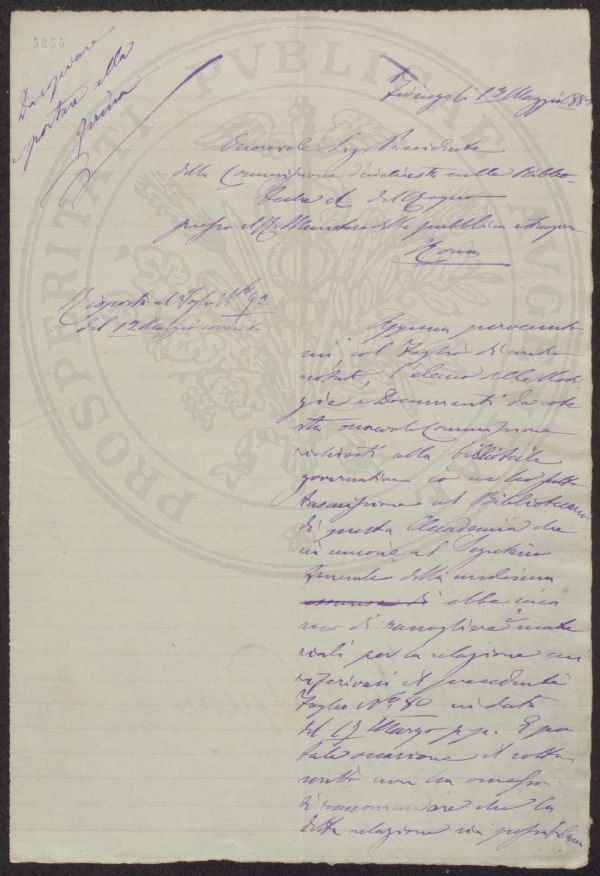 5255
Da copiare
e portare alla
firma
Firenze li 13 Maggio 88
Onorevole Sig. Presidente
della Commissione d'inchiesta sulle Biblio-
teche del Regno
presso il R. Ministero della pubblica istruzione
Roma
Risposta al foglio N° 92
del 12 Maggio corrente
Appena pervenuta
mi, col Foglio di contro
notato, l'elenco delle Noti-
zie e Documenti da cote
sta onorevole Commissione
richiesti alla biblioteca
governativa io ne ho fatta
trasmissione al Bibliotecario
di questa Accademia che
in unione al Segretario
Generale della medesima
ebbe inca
rico di raccogliere i mate
riali per la relazione cui
riferivasi il precedente
Foglio N° 80 in data
del 17 Marzo p.p. E in
tale occasione il sotto
scritto non ha omesso
di raccomandare che la
detta relazione sia
PROSPERITATI PVBLICAE AVGENDAE